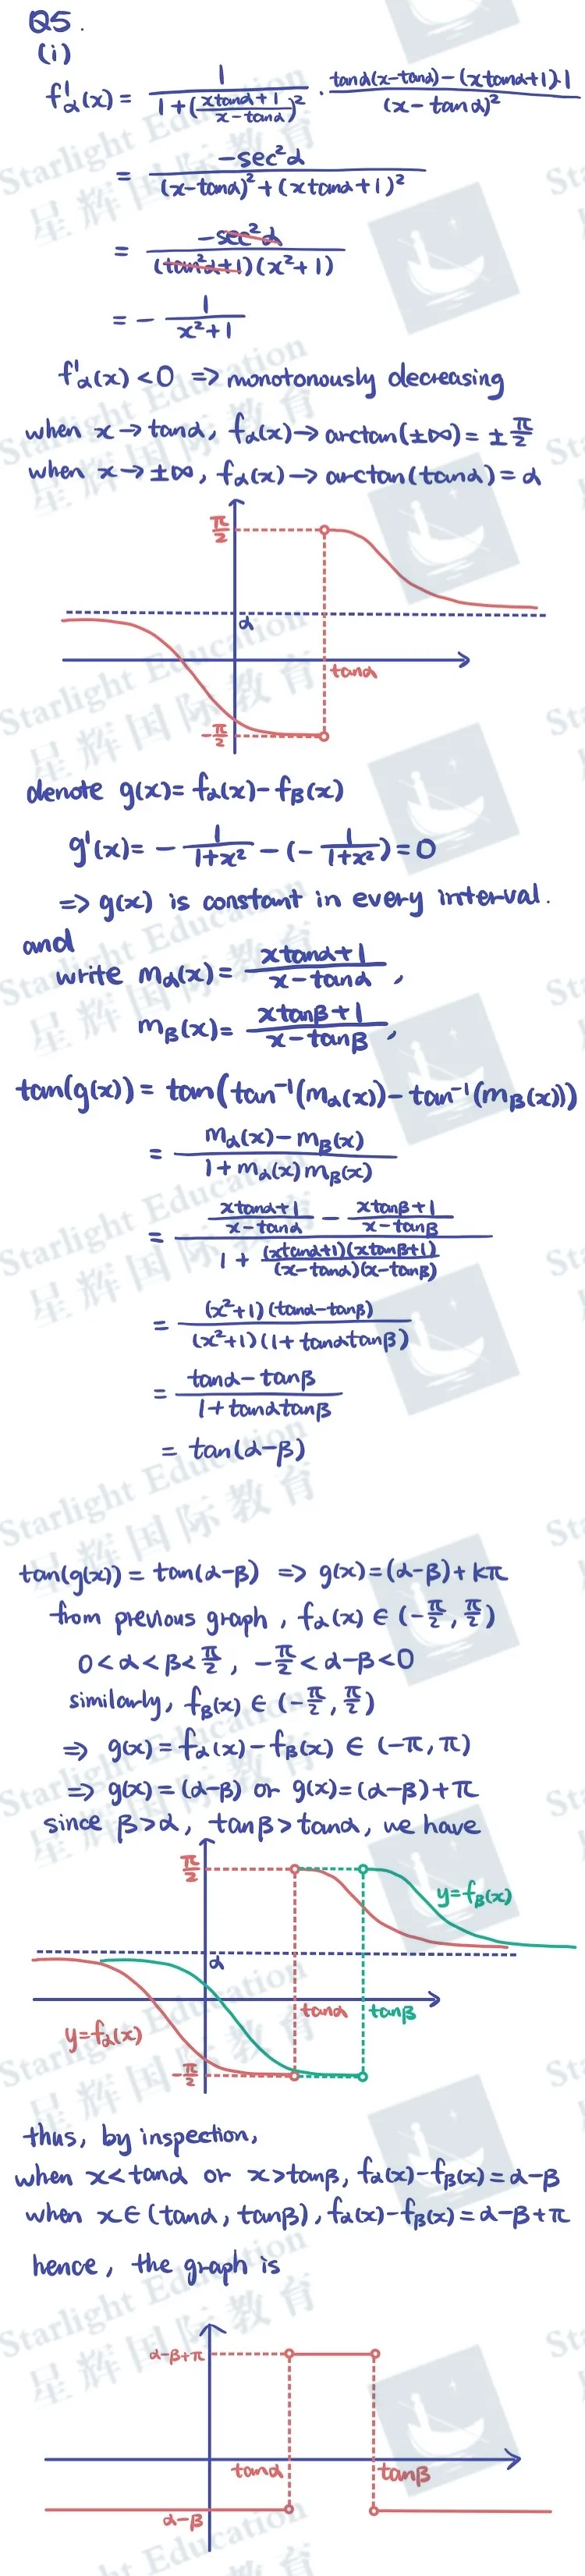 Q5.
(i)
f'α(x) = 1/(1+((xtanα+1)/(x-tanα))²) · (tanα(x-tanα)-(xtanα+1)·1)/(x-tanα)²
= -sec²α/((x-tanα)²+(xtanα+1)²)
= -sec²α/((tan²α+1)(x²+1))
= - 1/(x²+1)
f'α(x) < 0 => monotonously decreasing
when x → tanα, fα(x) → arctan(±∞) = ± π/2
when x → ±∞, fα(x) → arctan(tanα) = α
π/2
α
tanα
-π/2
denote g(x) = fα(x) - fβ(x)
g'(x) = - 1/(1+x²) - (- 1/(1+x²)) = 0
=> g(x) is constant in every interval.
and
write mα(x) = (xtanα+1)/(x-tanα),
mβ(x) = (xtanβ+1)/(x-tanβ),
tan(g(x)) = tan(tan⁻¹(mα(x)) - tan⁻¹(mβ(x)))
= (mα(x) - mβ(x))/(1+mα(x)mβ(x))
= ((xtanα+1)/(x-tanα) - (xtanβ+1)/(x-tanβ))/(1 + (xtanα+1)(xtanβ+1)/((x-tanα)(x-tanβ)))
= (x²+1)(tanα-tanβ)/((x²+1)(1+tanαtanβ))
= (tanα-tanβ)/(1+tanαtanβ)
= tan(α-β)
tan(g(x)) = tan(α-β) => g(x) = (α-β)+kπ
from previous graph, fα(x) ∈ (-π/2, π/2)
0<α<β<π/2, -π/2<α-β<0
similarly, fβ(x) ∈ (-π/2, π/2)
=> g(x) = fα(x) - fβ(x) ∈ (-π, π)
=> g(x) = (α-β) or g(x) = (α-β)+π
since β>α, tanβ>tanα, we have
π/2
y=fβ(x)
α
tanα
tanβ
y=fα(x)
-π/2
thus, by inspection,
when x<tanα or x>tanβ, fα(x)-fβ(x) = α-β
when x∈(tanα, tanβ), fα(x)-fβ(x) = α-β+π
hence, the graph is
α-β+π
tanα
tanβ
α-β
Starlight Education
星辉国际教育